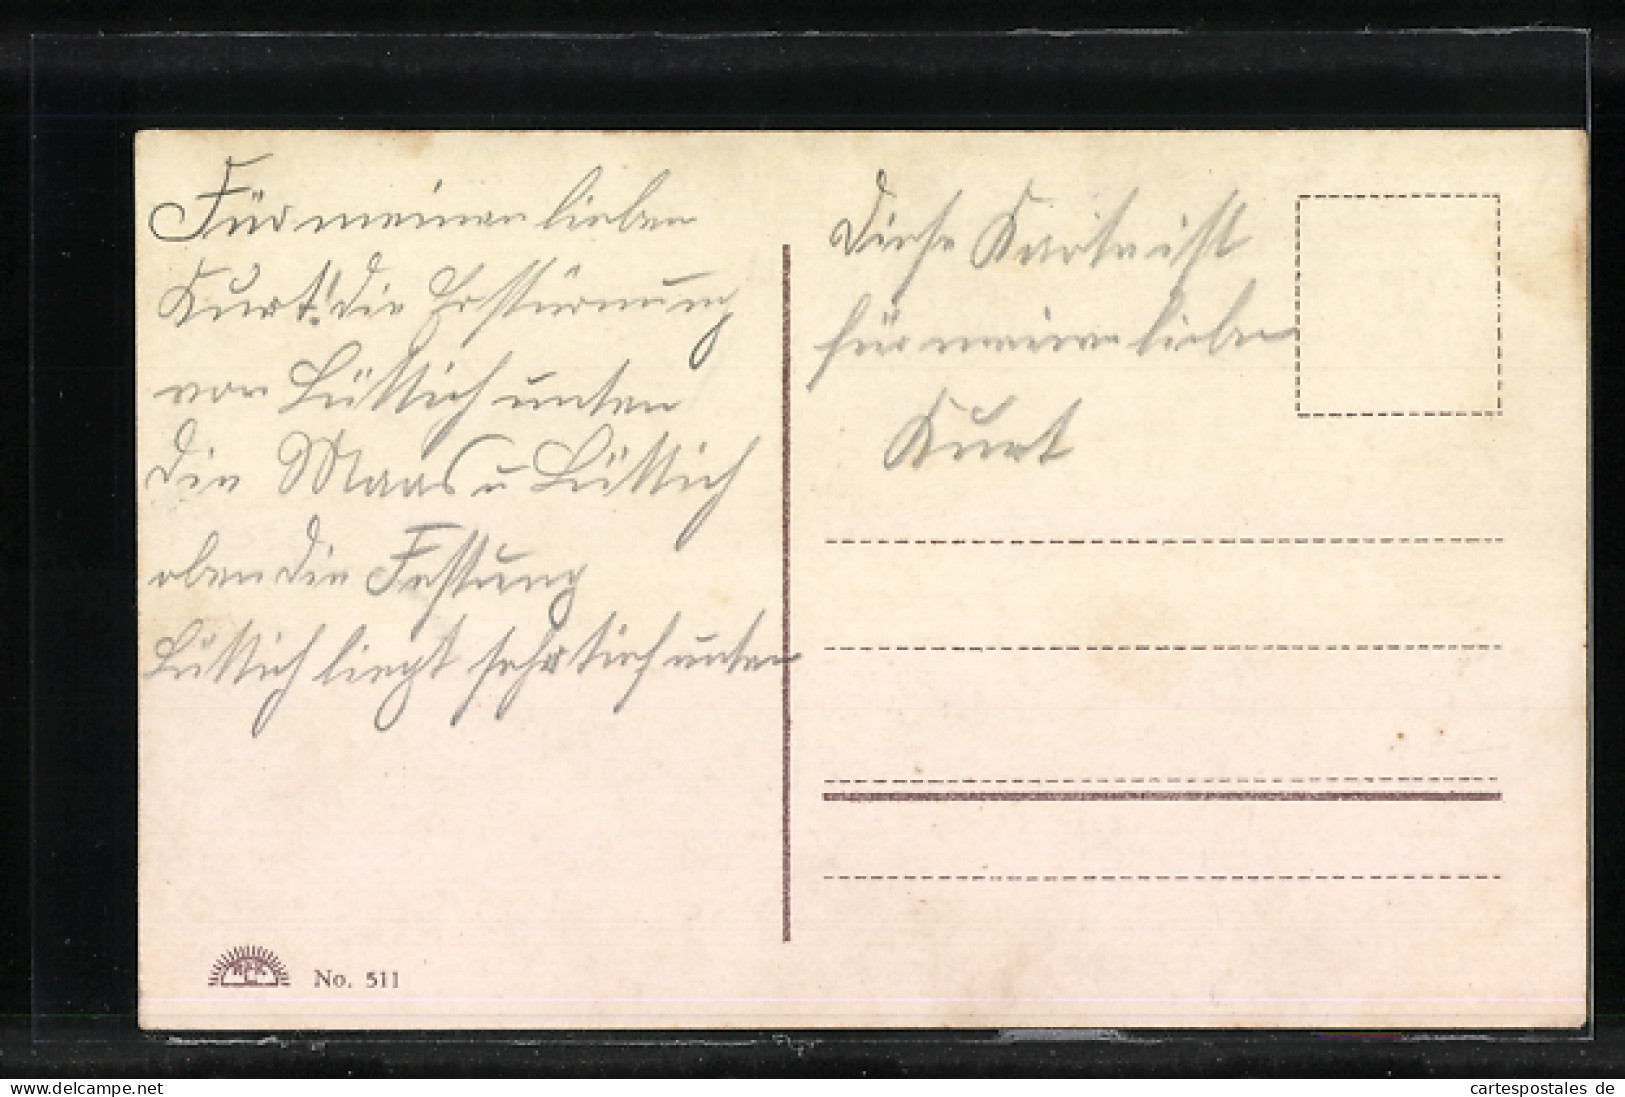 Für meinen lieben
Kurt! die Erstürmung
von Lüttich unten
die Maas u Lüttich
oben die Festung
Lüttich liegt sehr tief unten
Diese Karte ist
für meinen lieben
Kurt
No. 511
delcampe.net
cartespostales de